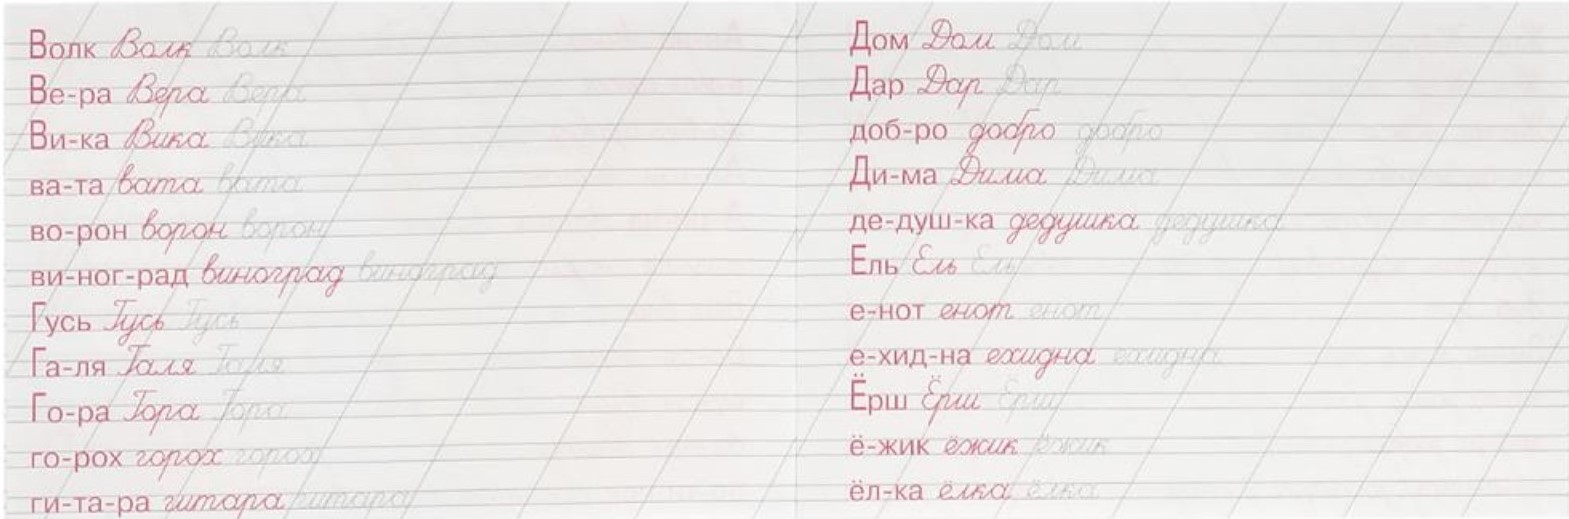 Волк Волк Волк
Ве-ра Вера Вера
Ви-ка Вика Вика
ва-та вата вата
во-рон ворон ворон
ви-ног-рад виноград виноград
Гусь Гусь Гусь
Га-ля Галя Галя
Го-ра Гора Гора
го-рох горох горох
ги-та-ра гитара гитара
Дом Дом Дом
Дар Дар Дар
доб-ро добро добро
Ди-ма Дима Дима
де-душ-ка дедушка дедушка
Ель Ель Ель
е-нот енот енот
е-хид-на ехидна ехидна
Ёрш Ёрш Ёрш
ё-жик ёжик ёжик
ёл-ка ёлка ёлка